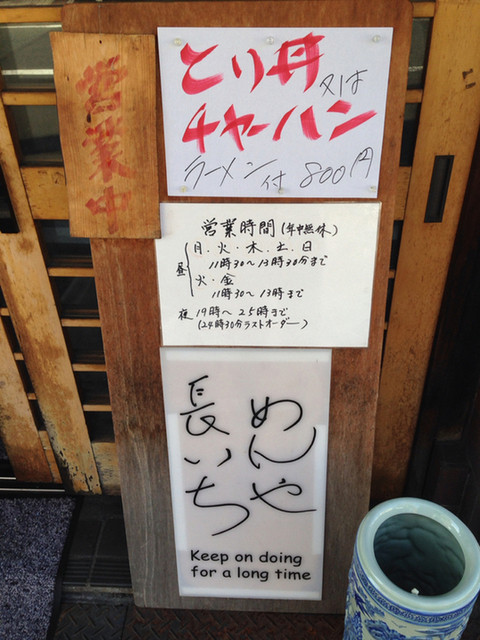 営業中
とり丼又は
チャーハン
ラーメン付 800円
営業時間(年中無休)
昼 月.火.木.土.日
11時30〜13時30分まで
火・金
11時30〜13時まで
夜 19時〜25時まで
(24時30分ラストオーダー)
めんや
長いち
Keep on doing
for a long time